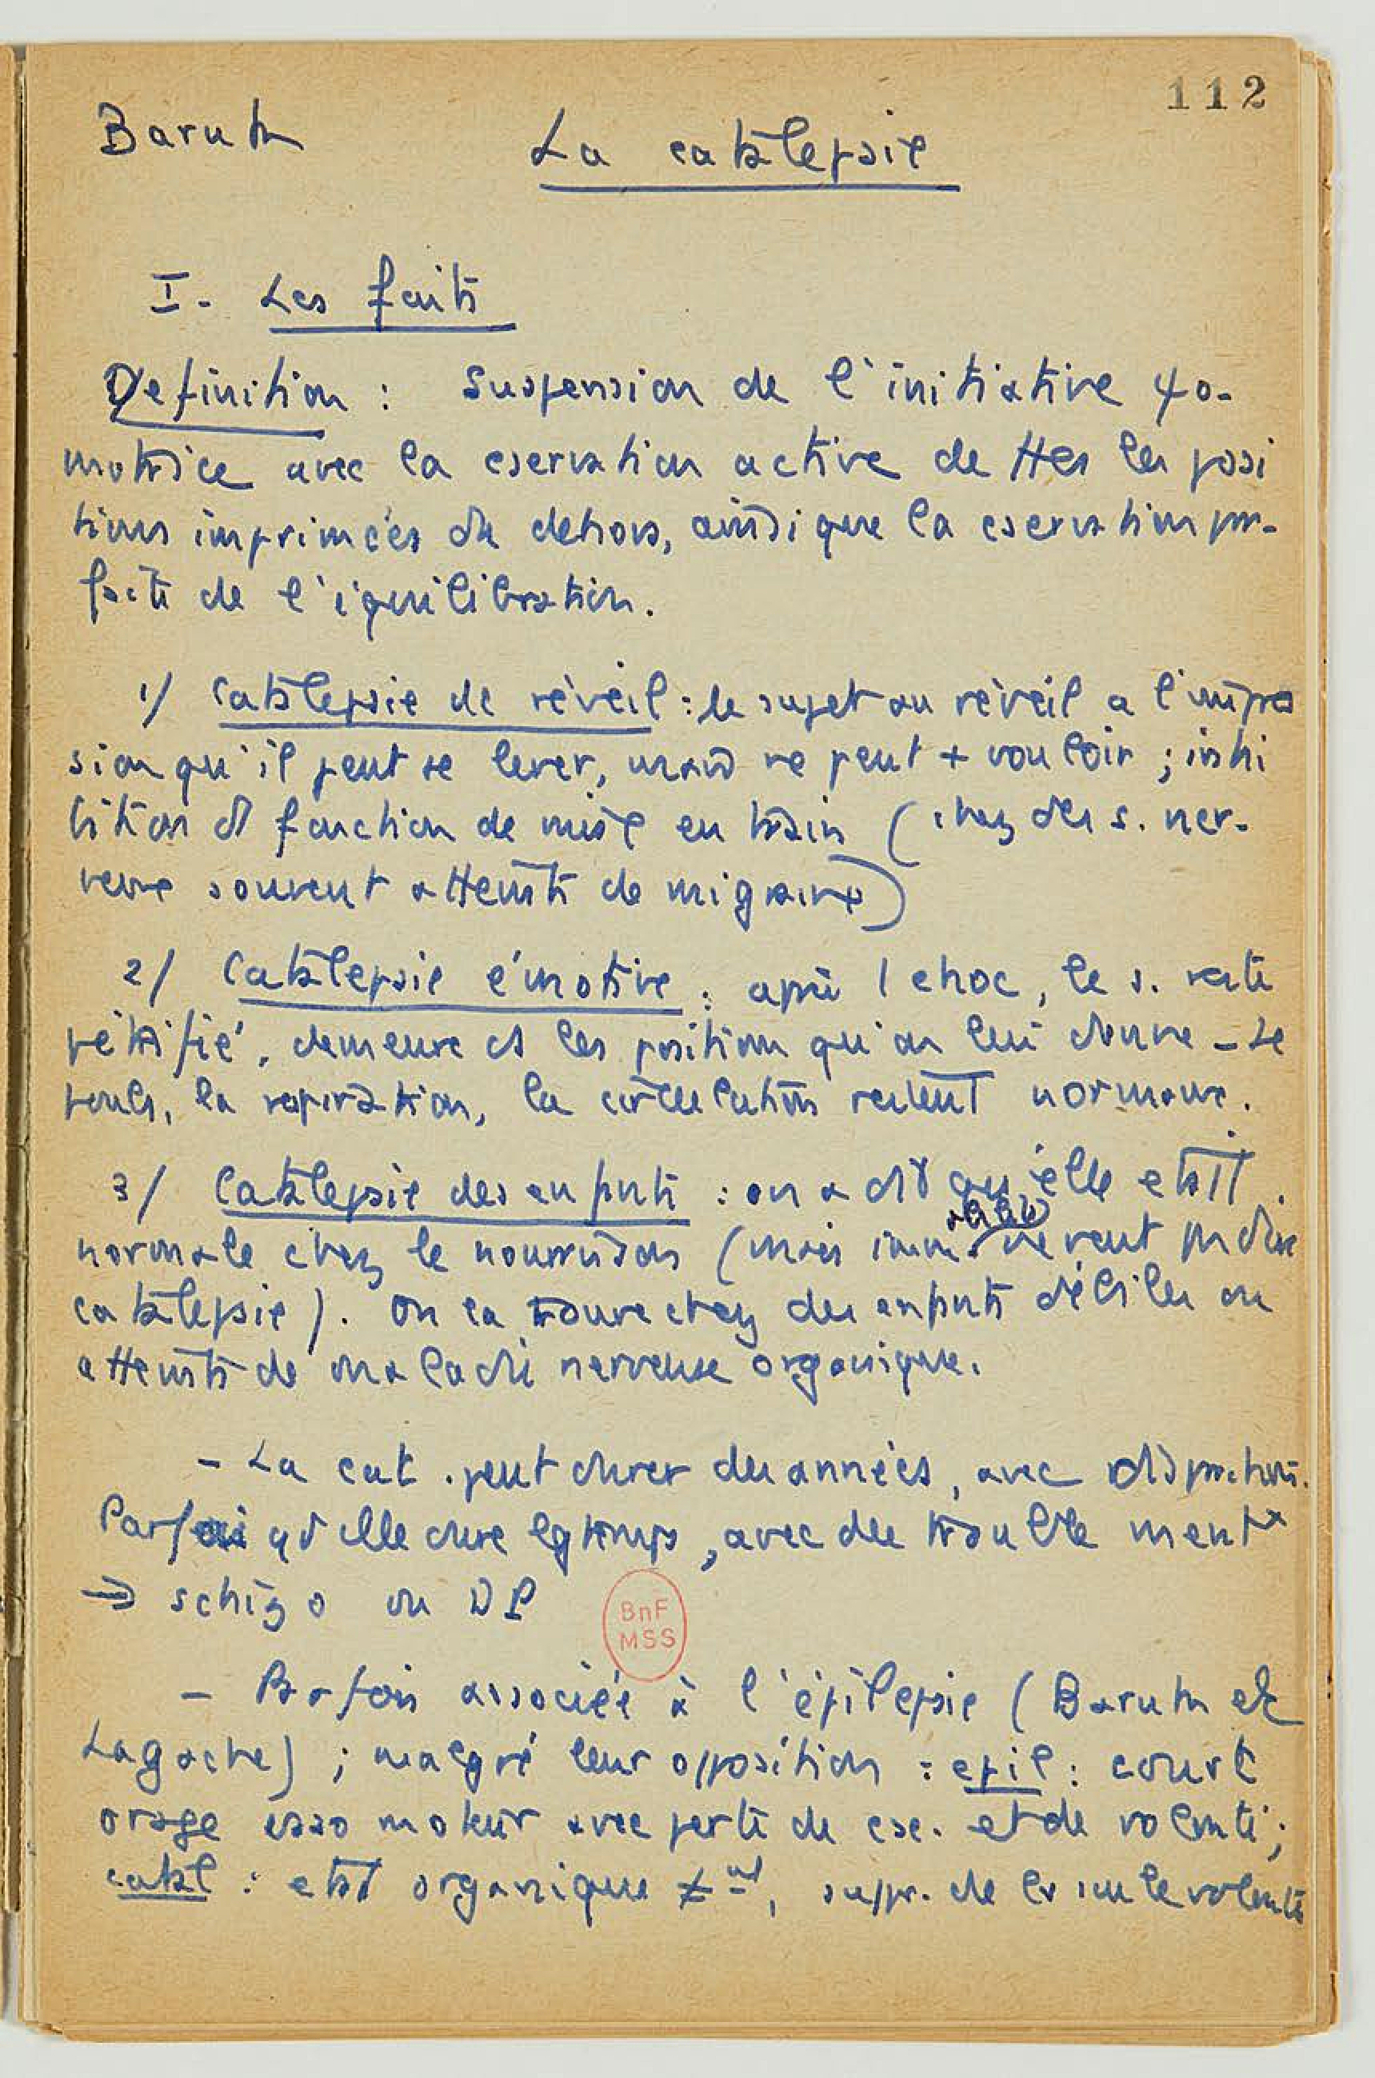 112
Baruk
La catalepsie
I - Les faits
Définition : Suspension de l'initiative ψo-
motrice avec la cservation active de ttes les posi
tions imprimées du dehors, ainsi que la cservation par-
faite de l'équilibration.
1/ Catalepsie de réveil : le sujet au réveil a l'impres
sion qu'il peut se lever, mais ne peut + vouloir ; inhi
bition de fonction de mise en train (chez des s. ner-
veux souvent atteints de migraine)
2/ Catalepsie émotive : après 1 choc, le s. reste
pétrifié, demeure ds les position qu'on lui donne - Le
pouls, la respiration, la circulation restent normaux.
3/ Catalepsie des enfants : on a dit qu'elle était
normale chez le nourrisson (mais immobilité ne veut pas dire
catalepsie). On la trouve chez des enfants débiles ou
atteints de maladie nerveuse organique.
- La cat. peut durer des années, avec disparition.
Parfois qd elle dure lgtemps, avec des trouble mentx
→ schizo ou DP
BnF
MSS
- Parfois associée à l'épilepsie (Baruk et
Lagache) ; malgré leur opposition : epil : court
orage moteur avec perte de csc. et de volonté ;
catal : etat organique ≠, supp. de la seule volonté